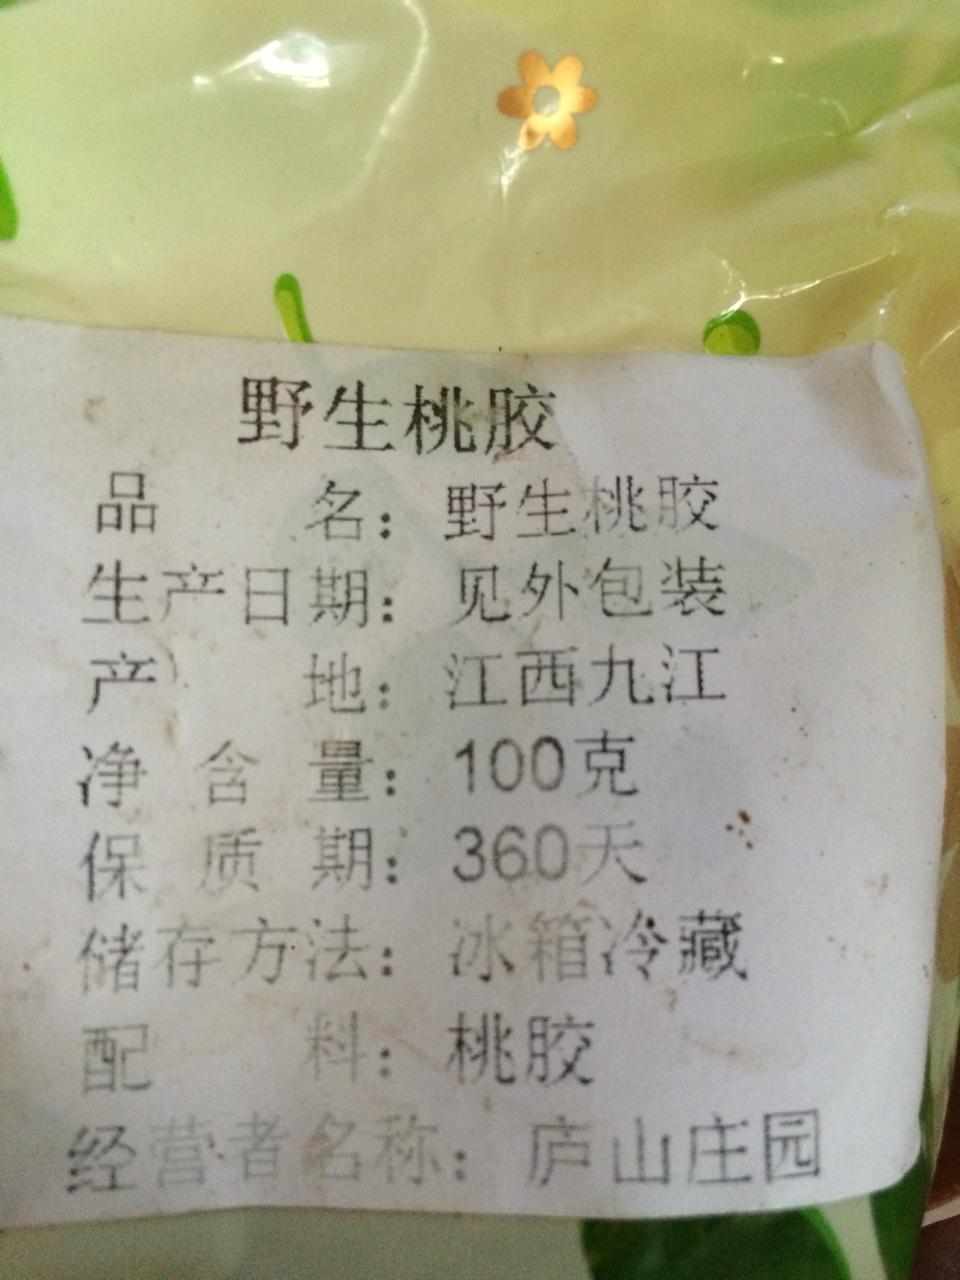 野生桃胶
品名：野生桃胶
生产日期：见外包装
产地：江西九江
净含量：100克
保质期：360天
储存方法：冰箱冷藏
配料：桃胶
经营者名称：庐山庄园